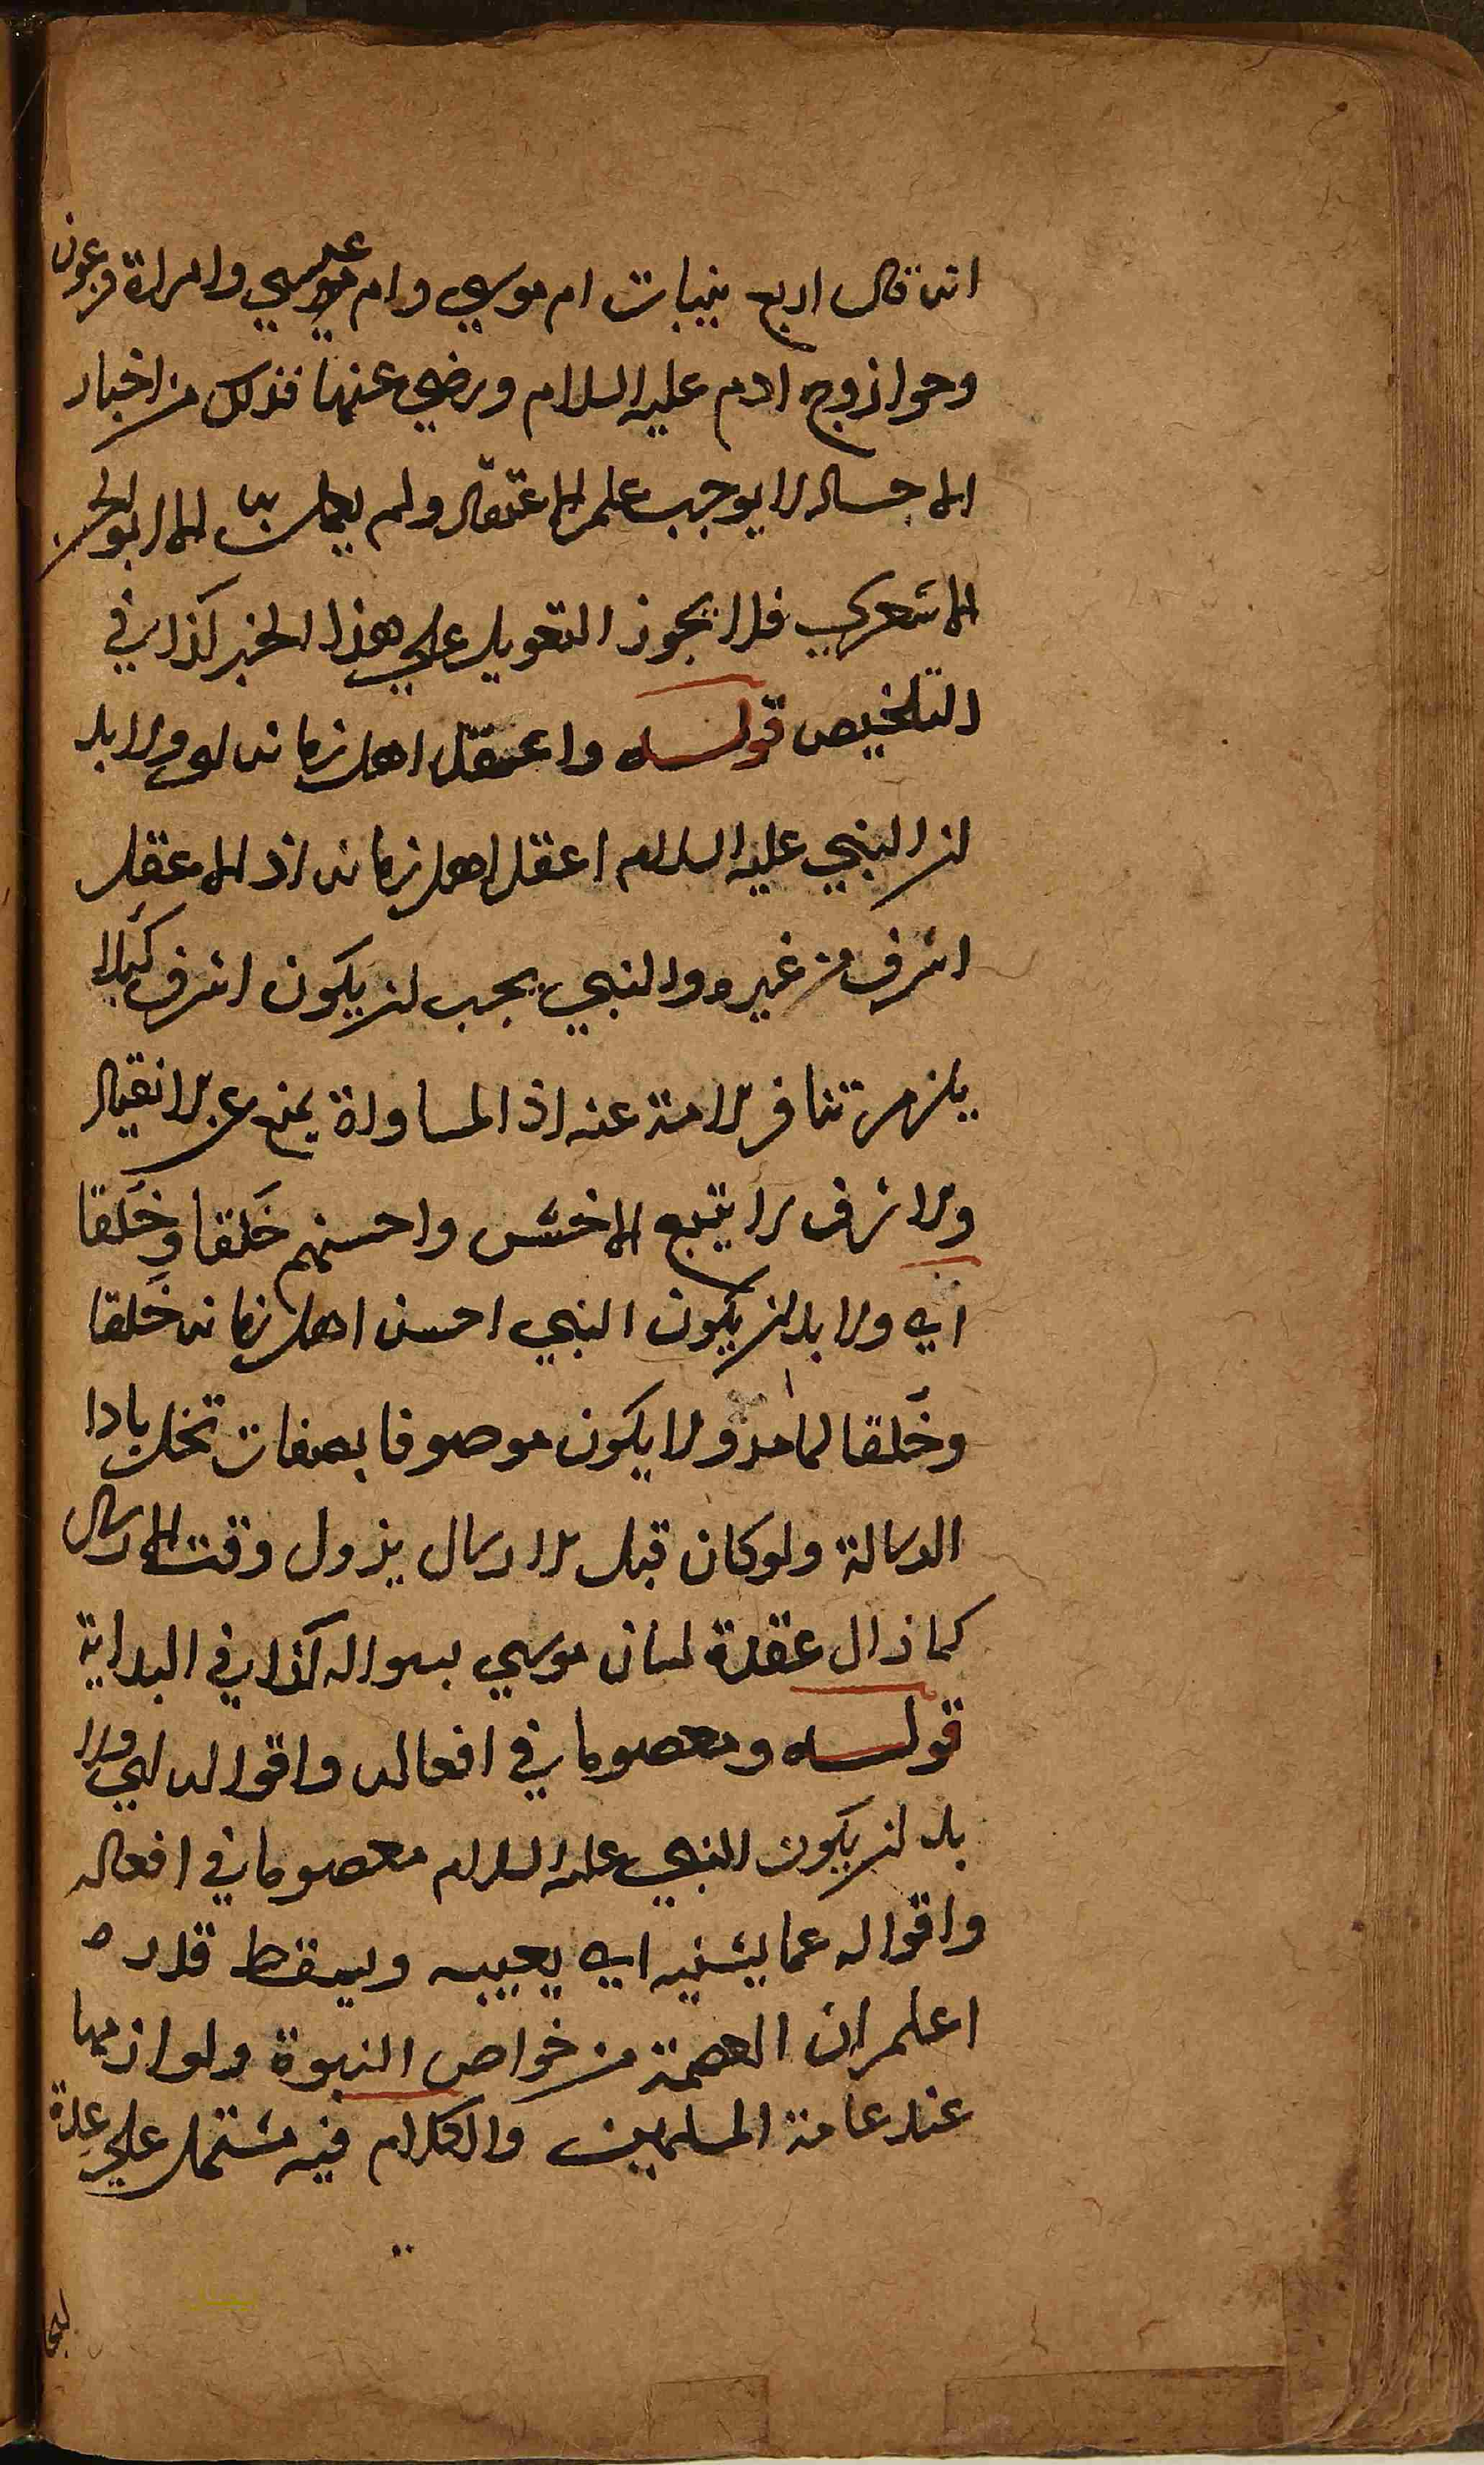 انه قال اربع نبيات ام موسي وام عيسي وامراة فرعون
وحوا زوج ادم عليه السلام ورضي عنها فذلك من اخبار
الاحاد لا يوجب علم الاعتقاد ولم يعمل به الا ابو الحسن
الاشعري فلا يجوز التعويل علي هذا الخبر كذا في
التلخيص قوله واعقل اهل زمانه اي ولا بد
ان النبي عليه السلام اعقل اهل زمانه اذ الاعقل
اشرف من غيره والنبي يجب ان يكون اشرف كيلا
يلزم تنافر الامة عنه اذ المساواة يمنع عن الانقياد
والاشرف لا يتبع الاخس واحسنهم خَلقا وخُلقا
اي ولا بد ان يكون النبي احسن اهل زمانه خَلقا
وخُلقا لما مر ولا يكون موصوفا بصفات تخل بادا
الرسالة ولو كان قبل الارسال يزول وقت الارسال
كما زال عقدة لسان موسي بسواله كذا في البداية
قوله ومعصوما في افعاله واقواله اي ولا
بد ان يكون النبي عليه السلام معصوما في افعاله
واقواله عما يشينه اي يعيبه ويسقط قدره
اعلم ان العصمة من خواص النبوة ولوازمها
عند عامة المسلمين والكلام فيه مشتمل علي عدة